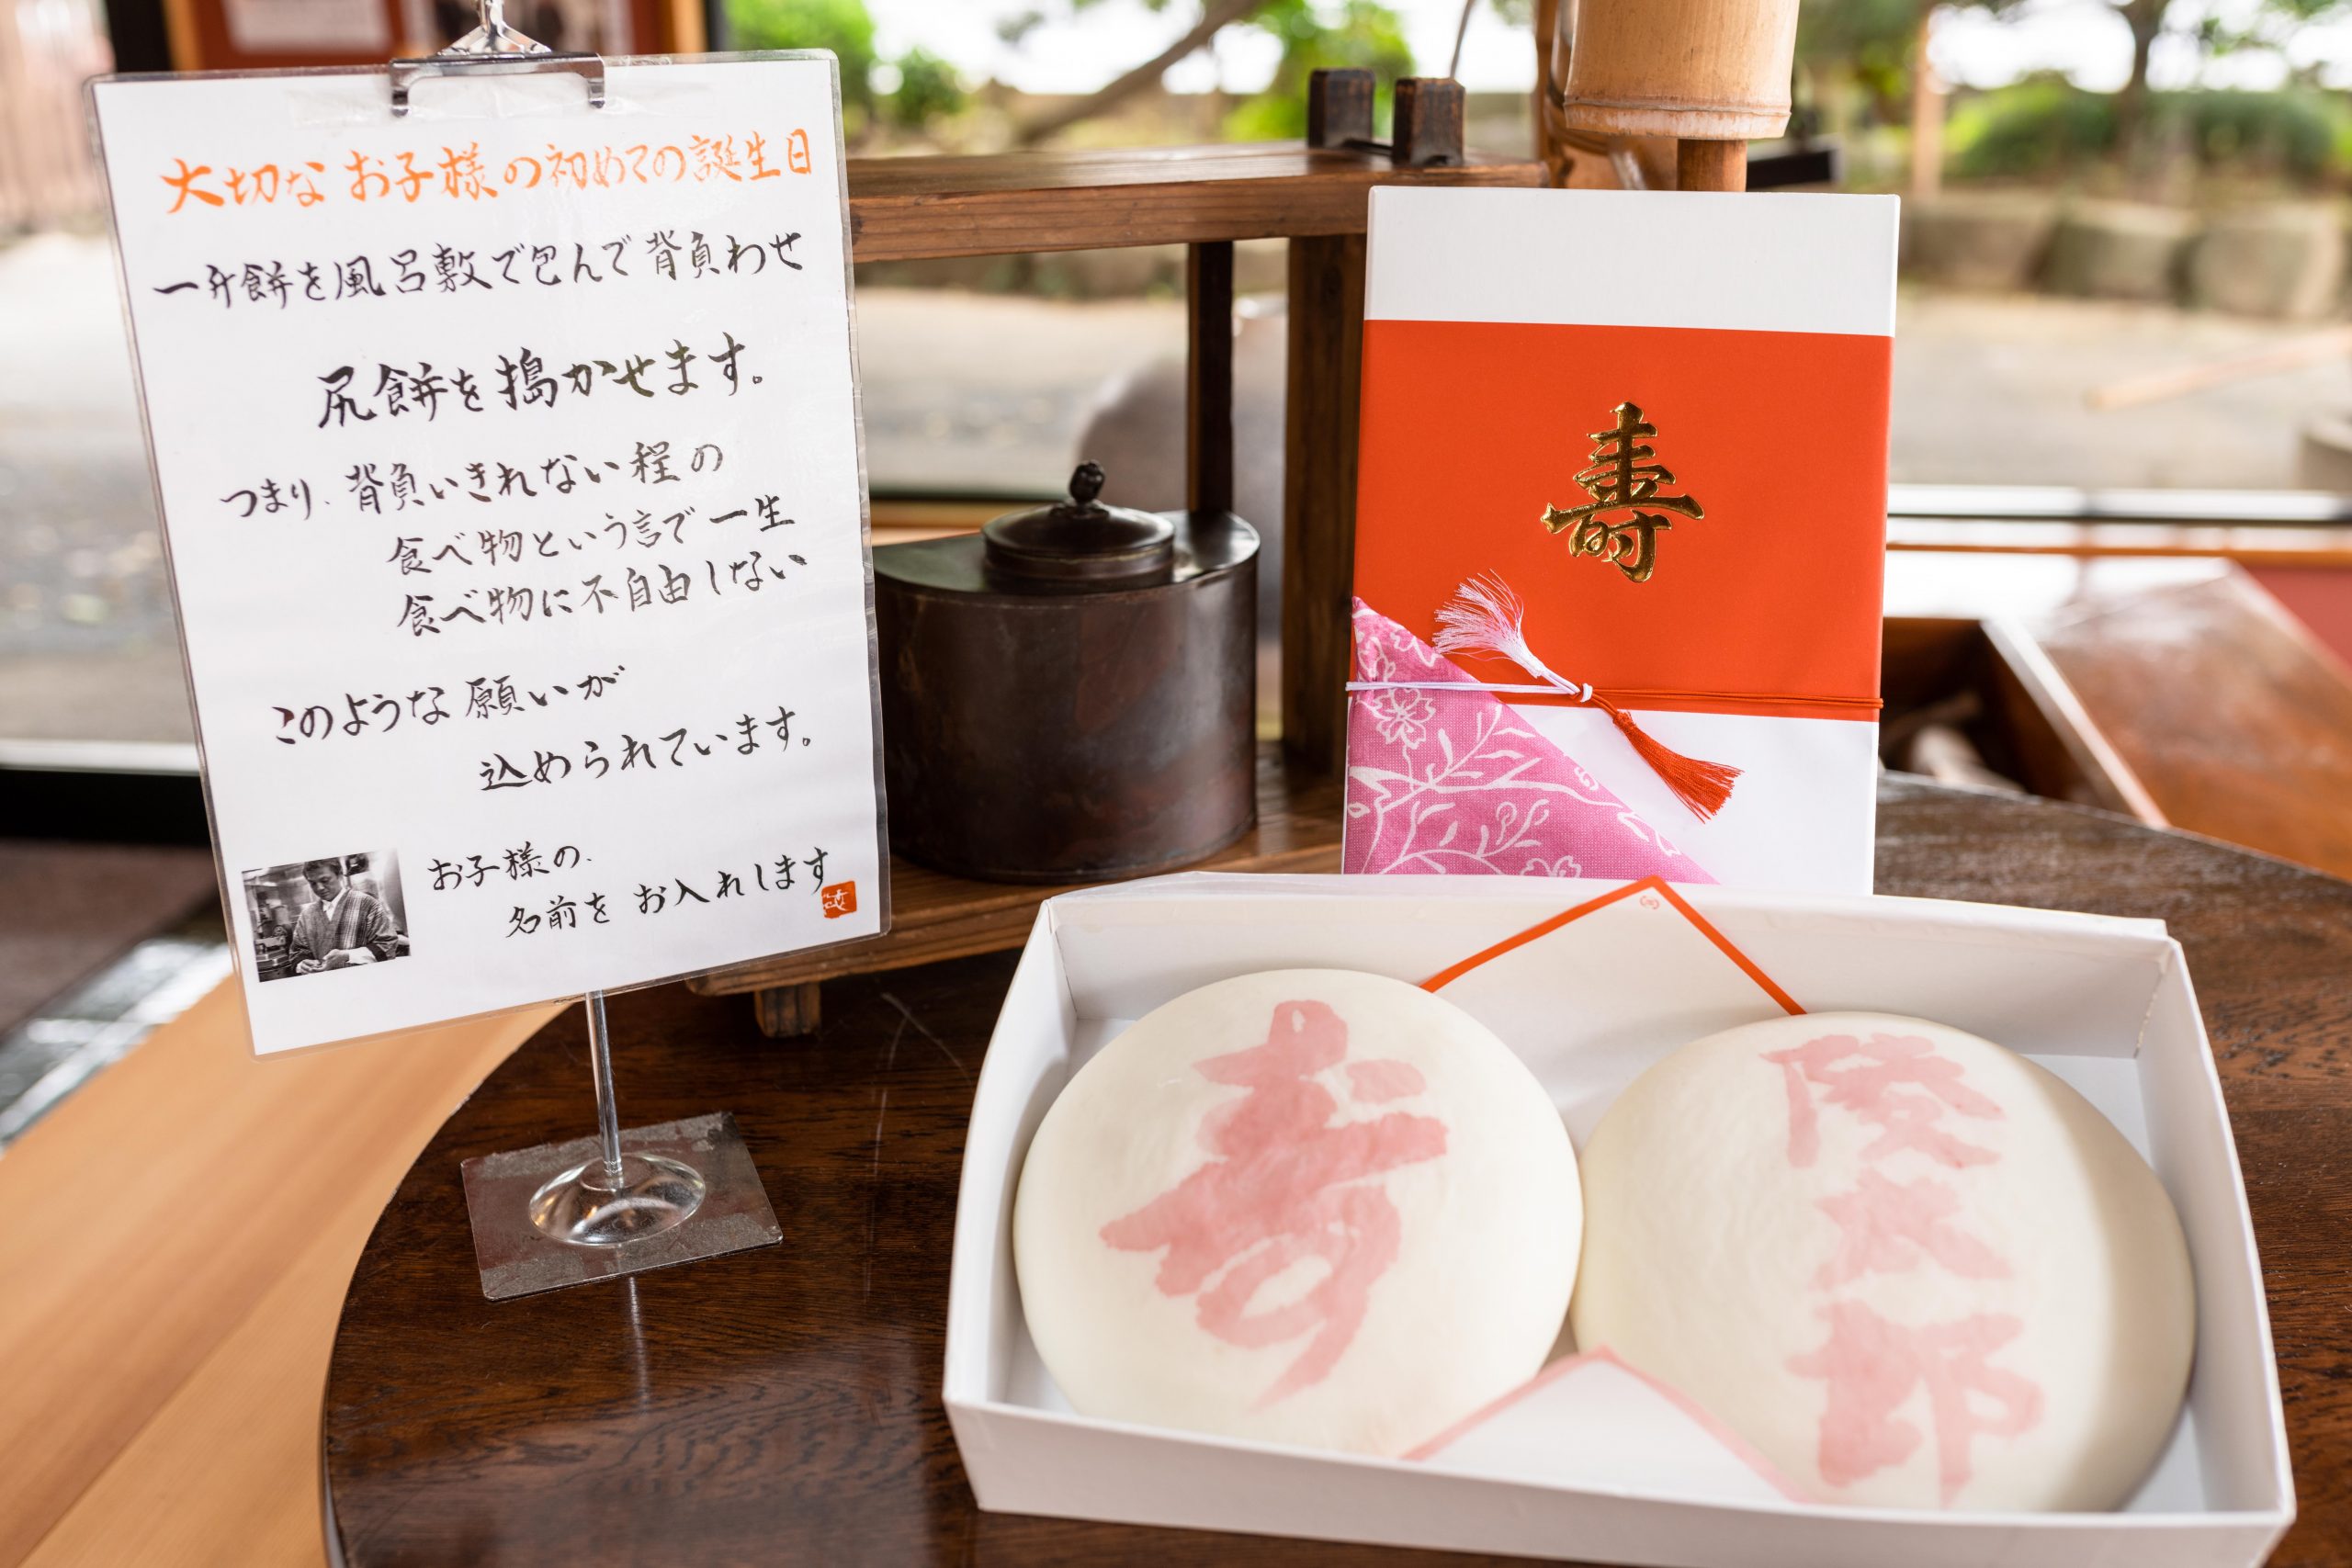 大切なお子様の初めての誕生日
一升餅を風呂敷で包んで背負わせ
尻餅を搗かせます。
つまり、背負いきれない程の
食べ物という言で一生
食べ物に不自由しない
このような願いが
込められています。
お子様の
名前をお入れします
寿
寿
太郎